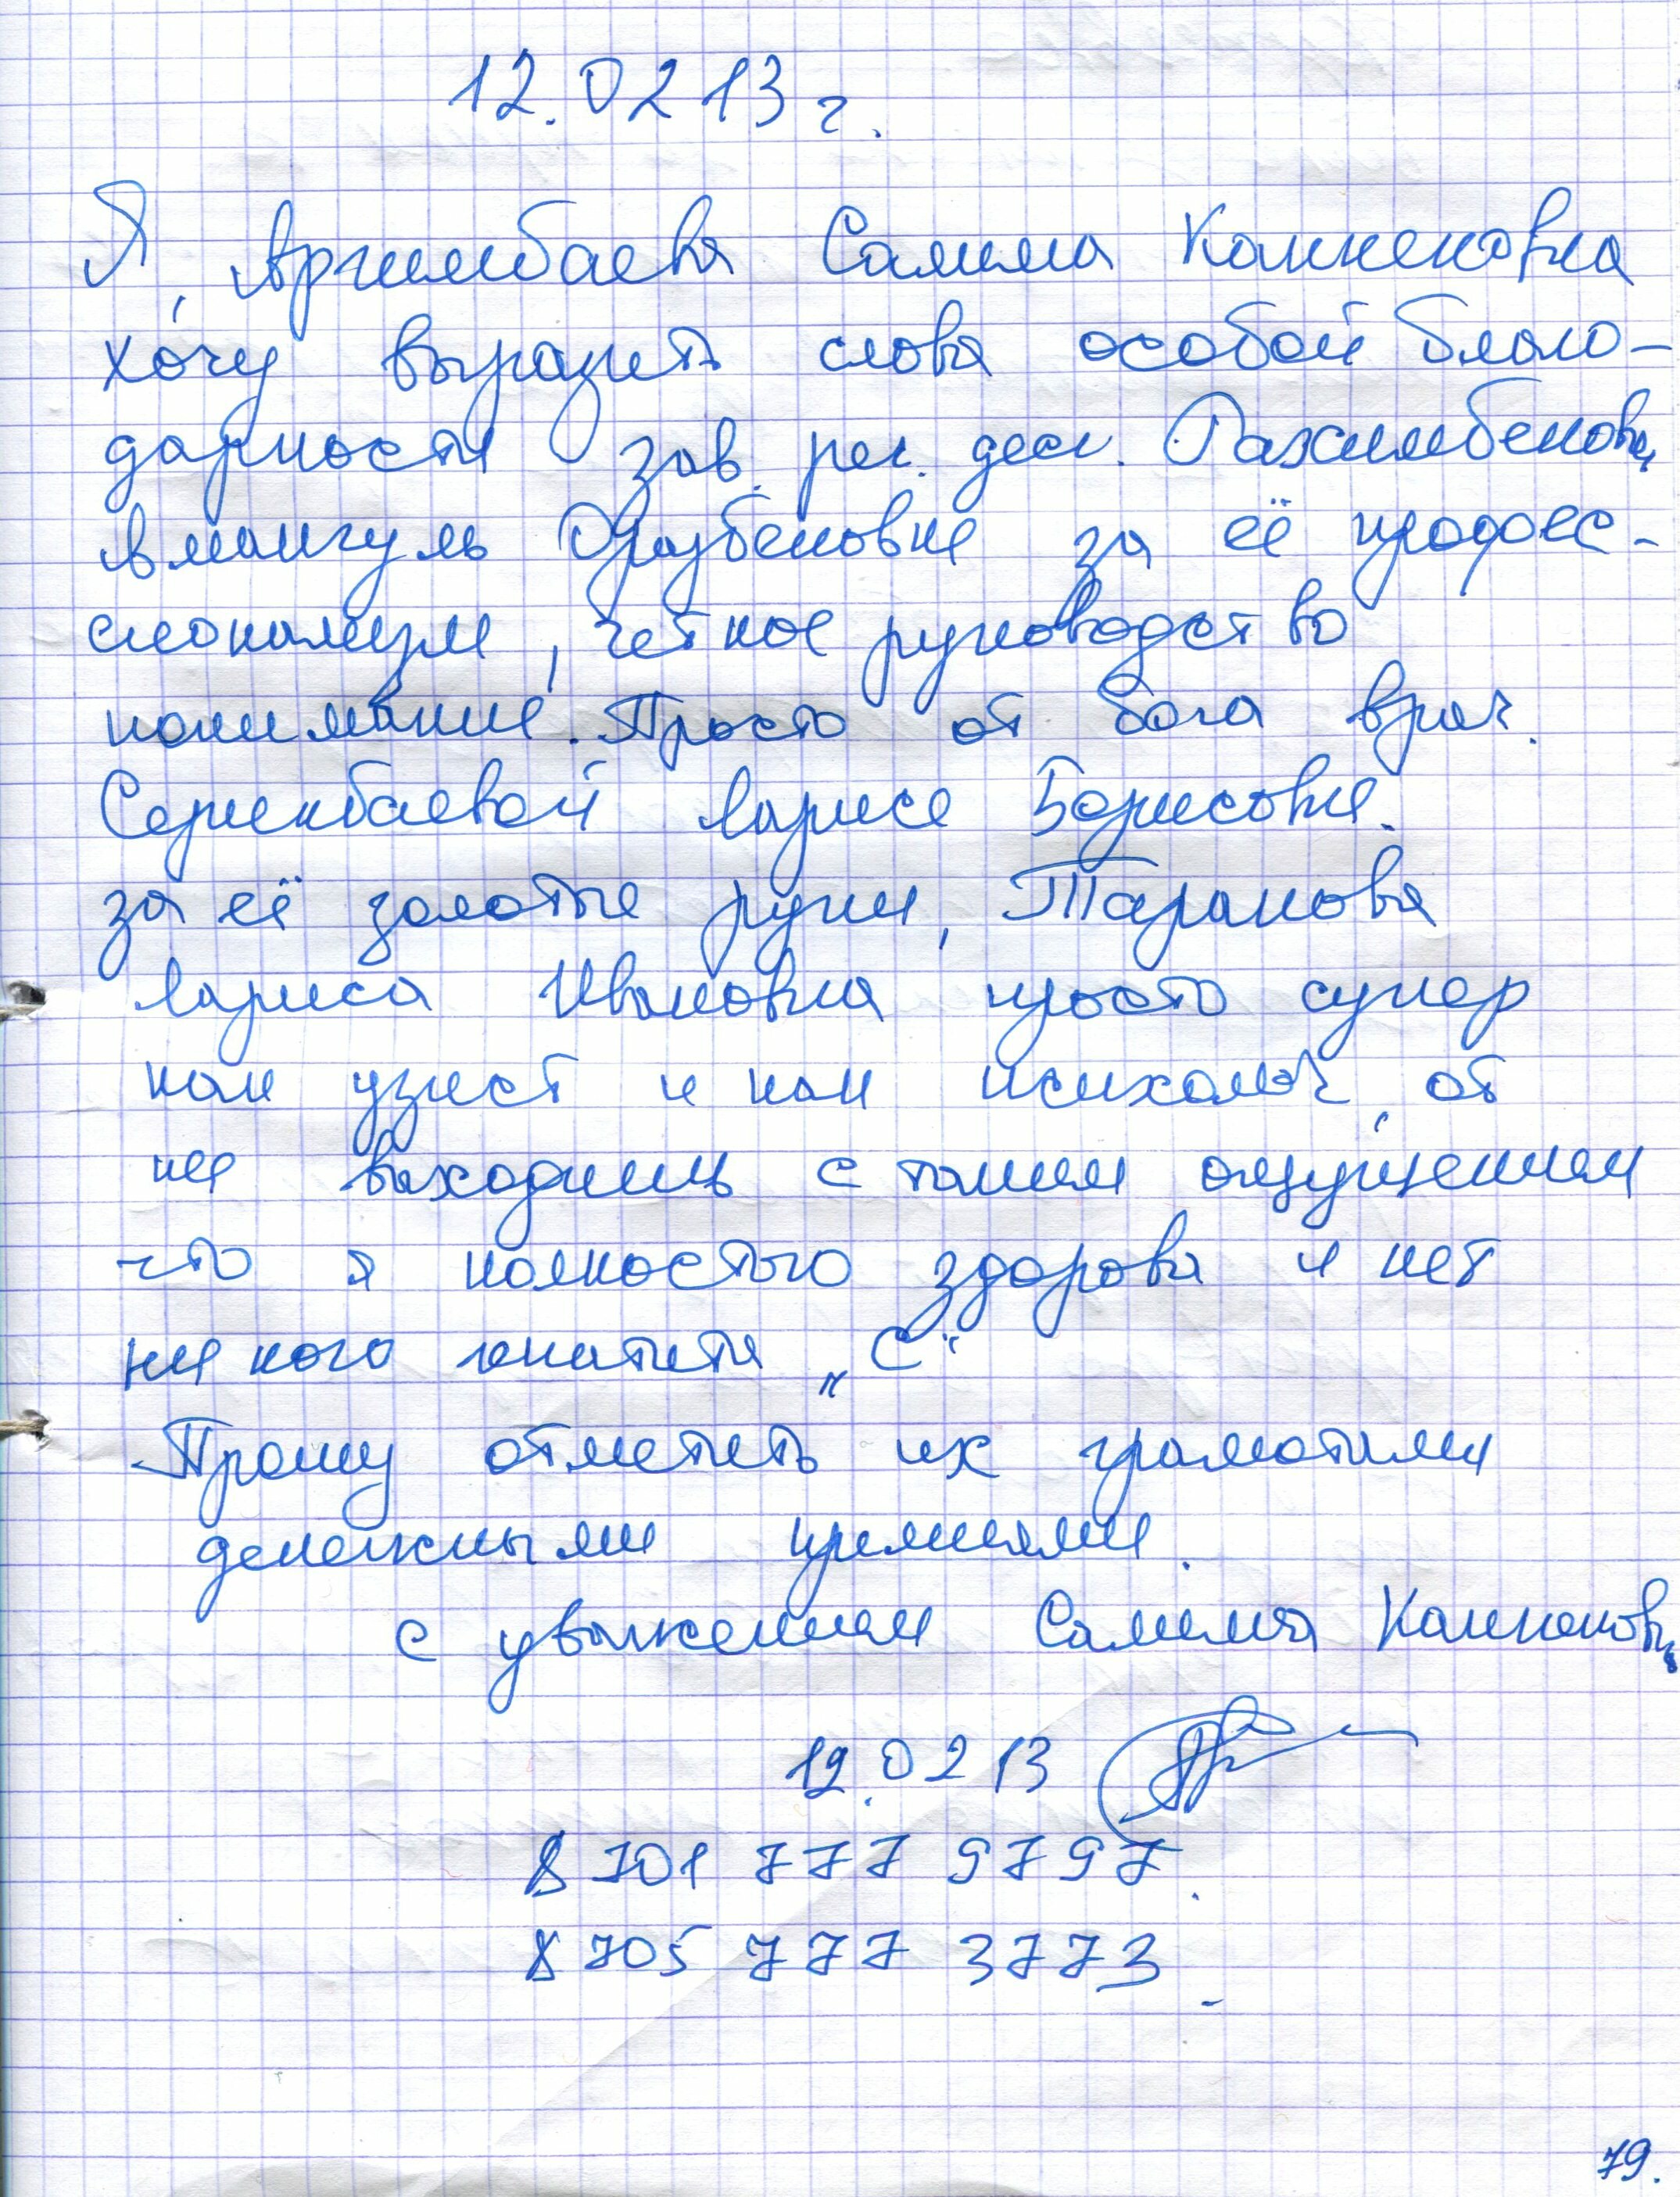 12.02 13 г.
Я, Аргимбаева Салима Каккеновна
хочу выразить слова особой благо-
дарности зав. рег. дест. Рахимбеновой
Алмангуль Оразбековне за её профес-
сионализм, чёткое руководство
понимание. Просто от бога врач.
Серикбаевой Ларисе Борисовне.
за её золотые руки, Таранова
Лариса Ивановна просто супер
как узист и как психолог, от
нее выходишь с таким ощущением
что я полностью здорова и нет
ни кого гепатита „С“
Прошу отметить их грамотами
денежными премиями.
с уважением Салима Каккеновна
12.02 13
8 701 777 9797.
8 705 777 3773
79.